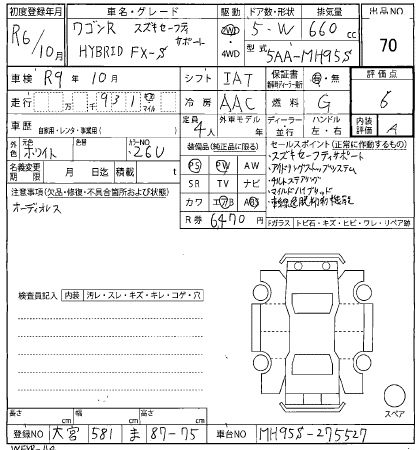 初度登録年月 車名・グレード 駆動 ドア数・形状 排気量 出品NO
R6/10月 ワゴンR スズキセーフティサポート 2WD 5-W 660cc 70
HYBRID FX-S 4WD 型式 5AA-MH95S
車検 R9年10月 シフト IAT 保証書 有・無 評価点
走行 万 千 931 km マイル 冷房 AAC 燃料 G 6
車歴 自家用・レンタ・事業用( ) 定員 4人 外車モデル 年 ディーラー 並行 ハンドル 左・右 内装評価 A
外色 元色 ホワイト 色替 カラーNO 26U 装備品(純正品に限る) セールスポイント(正常に動作するもの)
名義変更期限 月 日迄 積載 t PS PW AW ・スズキセーフティサポート
注意事項(欠品・修復・不具合箇所および状態) SR TV ナビ ・アイドリングストップシステム
オーディオレス カワ エアB ABS ・チルトステアリング
R券 6470円 ・マイルドハイブリッド
Fガラス トビ石・キズ・ヒビ・ワレ・リペア跡
検査員記入 内装 汚レ・スレ・キズ・キレ・コゲ・穴
スペア
長さ cm 幅 cm 高さ cm
登録NO 大宮 581 ま 87-75 車台NO MH95S-275527